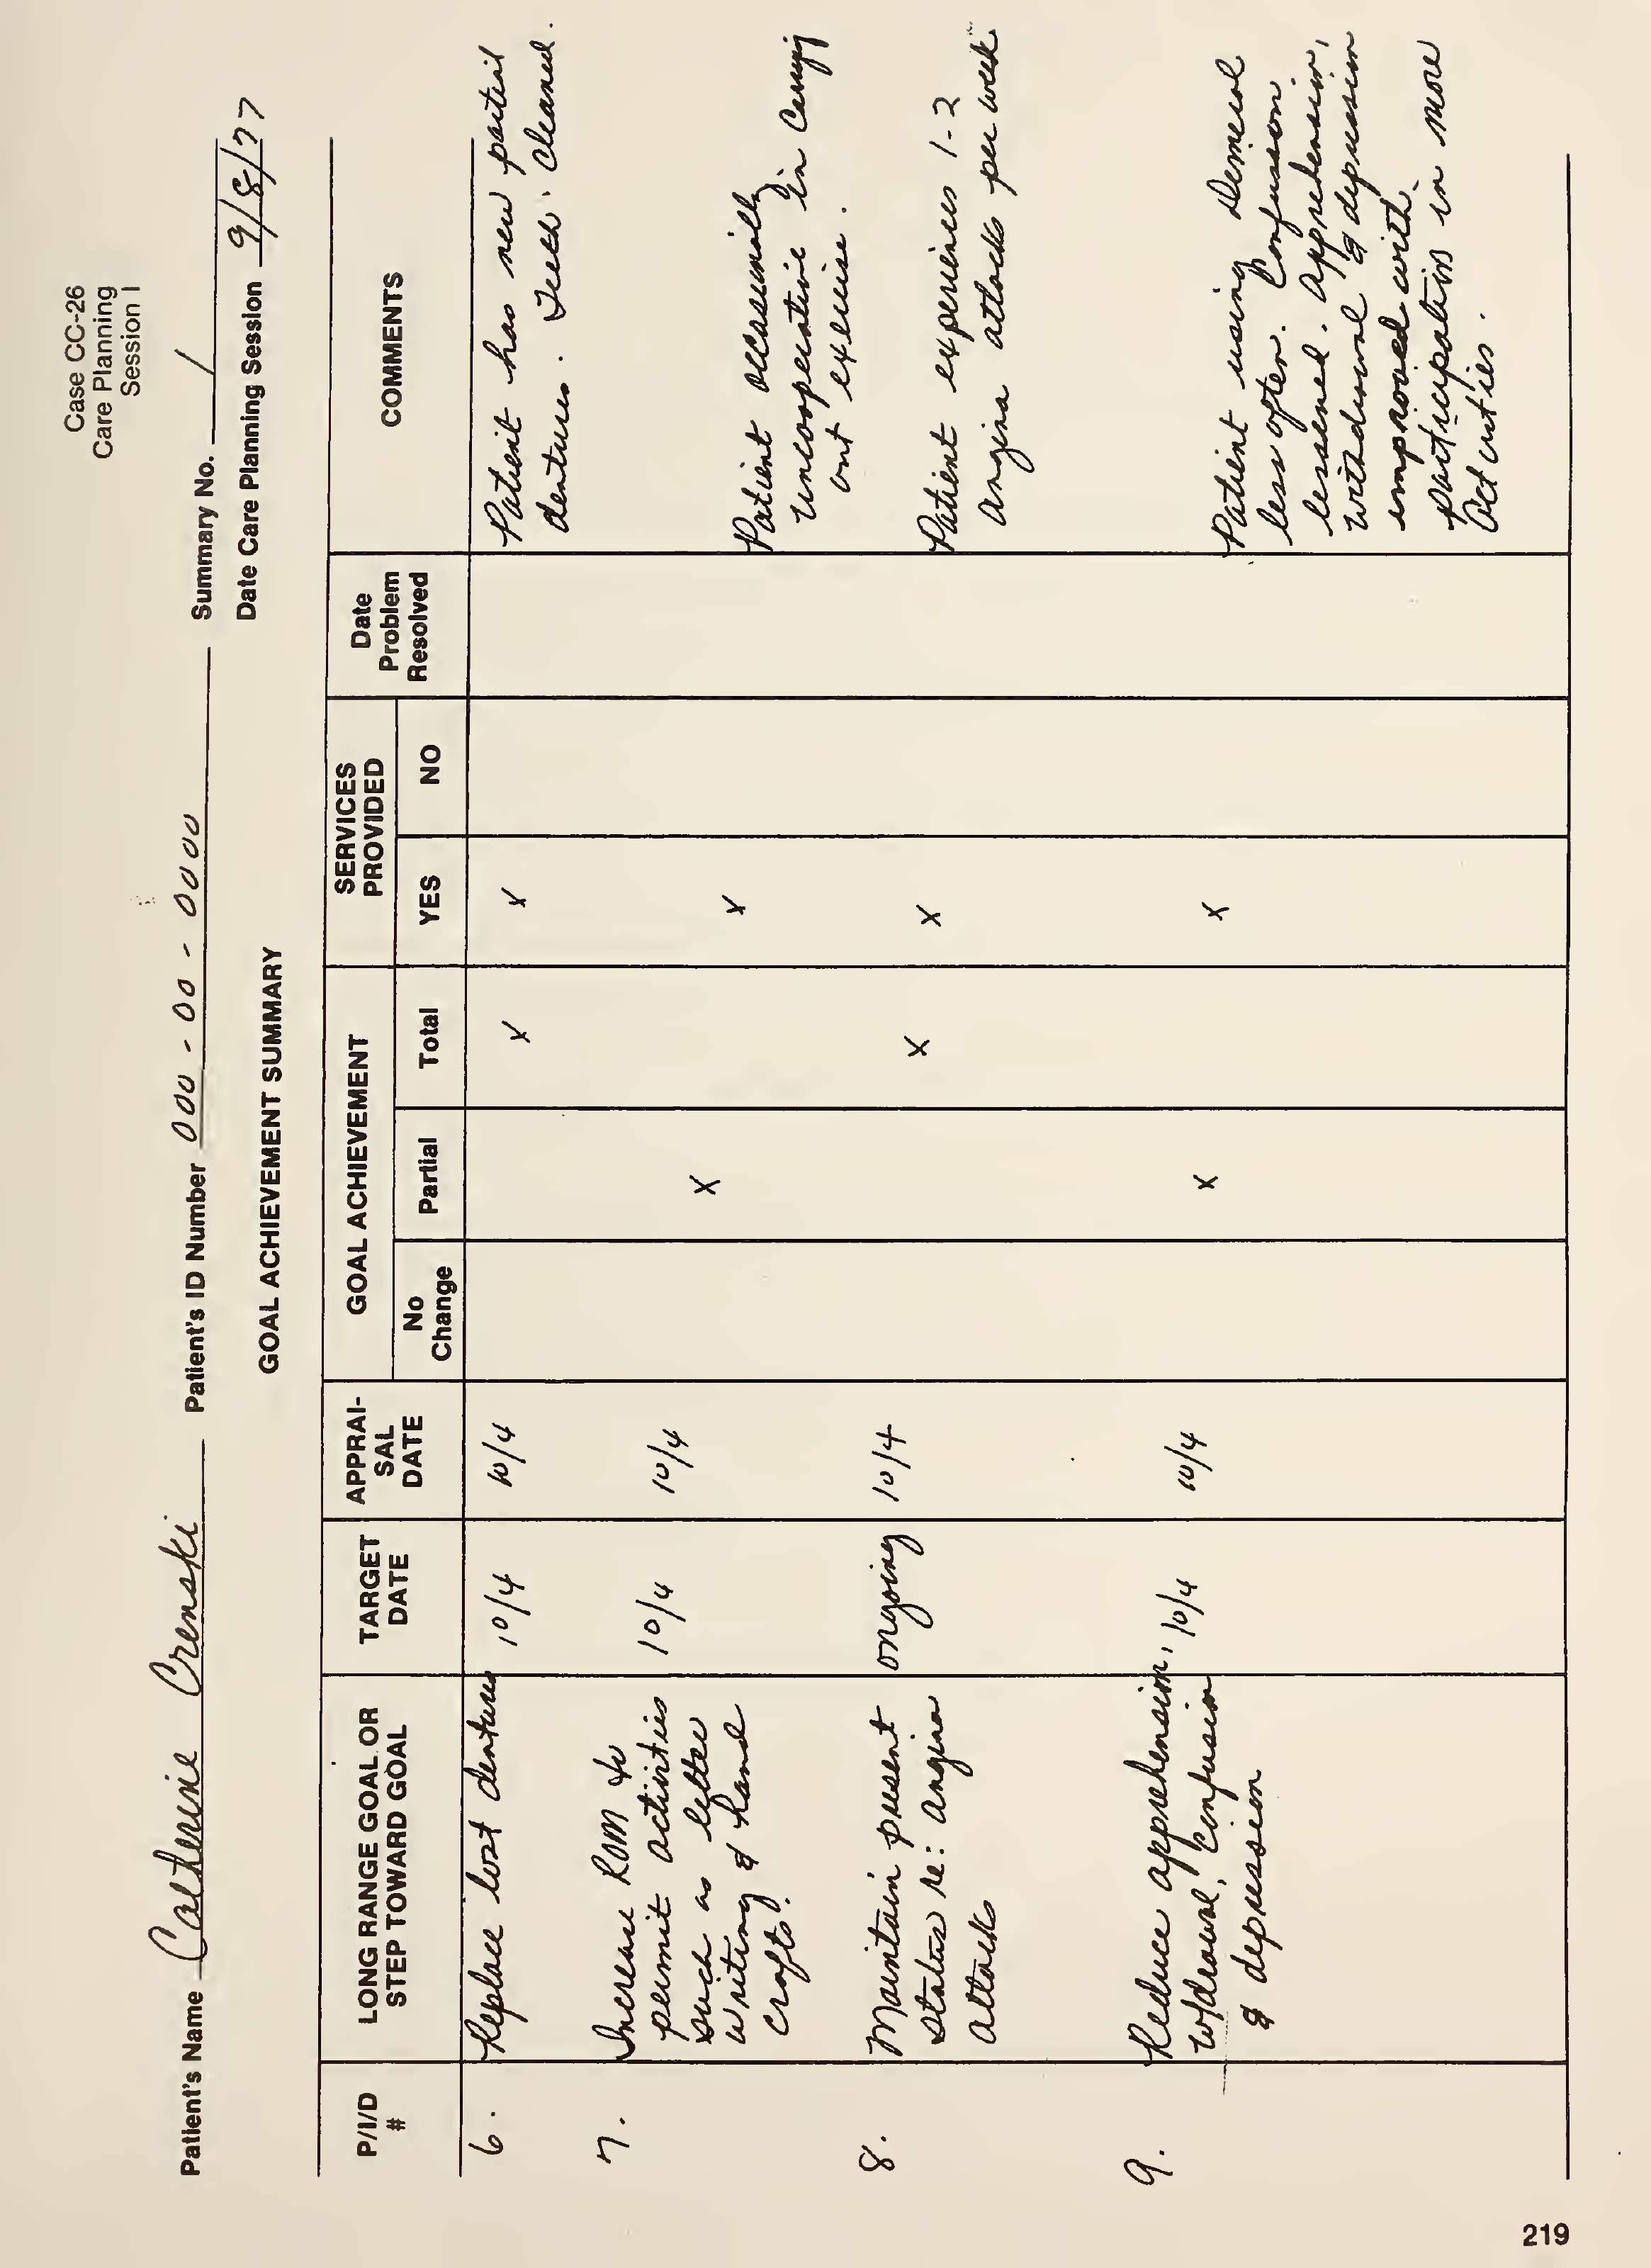 Case CC-26
Care Planning
Session I
Patient's Name Catherine Crenski Patient's ID Number 000-00-0000 Summary No. 1
Date Care Planning Session 9/8/77
GOAL ACHIEVEMENT SUMMARY
P/I/D
#
LONG RANGE GOAL OR
STEP TOWARD GOAL
TARGET
DATE
APPRAI-
SAL
DATE
GOAL ACHIEVEMENT
No
Change
Partial
Total
SERVICES
PROVIDED
YES
NO
Date
Problem
Resolved
COMMENTS
6.
Replace lost dentures
10/4
10/4
X
X
Patient has new partial
dentures. Teeth cleaned.
7.
Increase ROM to
permit activities
such as letter
writing & hand
crafts.
10/4
10/4
X
X
Patient occasionally
uncooperative in carryi
out exercise.
8.
Maintain present
status re: angina
attacks
ongoing
10/4
X
X
Patient experiences 1-2
angina attacks per week
9.
Reduce apprehension,
w/drawal, confusion
& depression
10/4
10/4
X
X
Patient using Demerol
less often. Confusion
lessened. Apprehension,
withdrawal & depression
improved with
participation in more
activities.
219